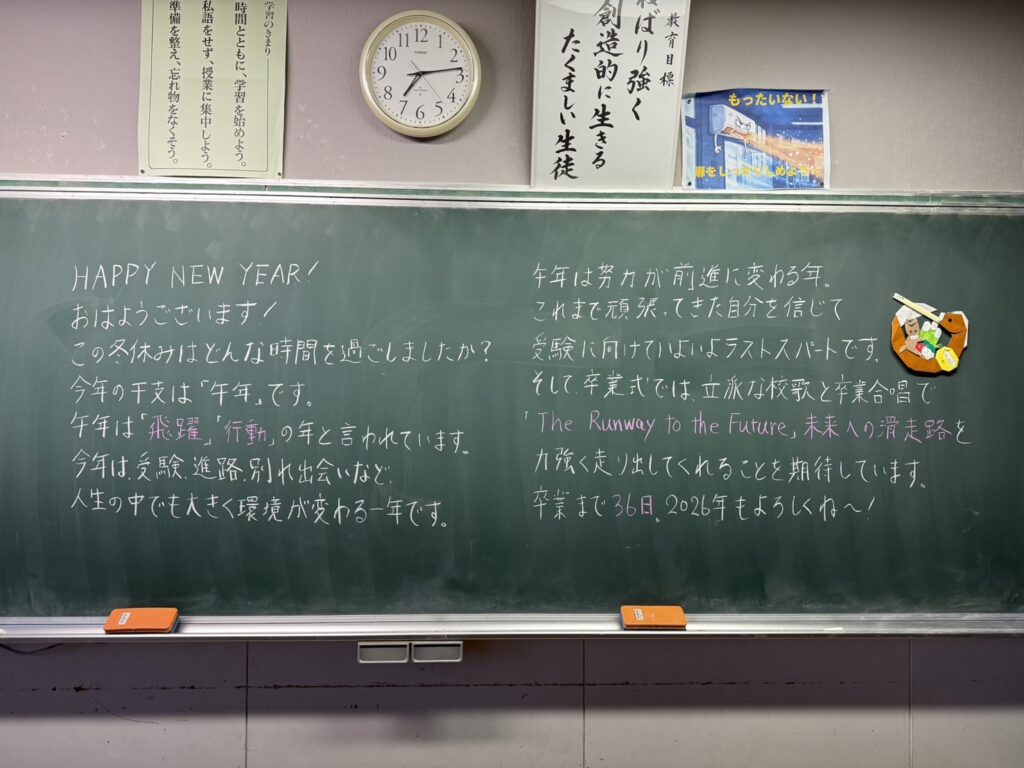 学習のきまり
時間とともに、学習を始めよう。
私語をせず、授業に集中しよう。
準備を整え、忘れ物をなくそう。
12
1
2
3
4
5
6
7
8
9
10
11
CASIO
教育目標
ねばり強く
創造的に生きる
たくましい生徒
もったいない!
扉をしっかりしめよう!
HAPPY NEW YEAR!
おはようございます!
この冬休みはどんな時間を過ごしましたか?
今年の干支は「午年」です。
午年は「飛躍」「行動」の年と言われています。
今年は、受験、進路、別れ出会いなど、
人生の中でも大きく環境が変わる一年です。
午年は努力が前進に変わる年。
これまで頑張ってきた自分を信じて
受験に向けていよいよラストスパートです。
そして卒業式では、立派な校歌と卒業合唱で
「The Runway to the Future」未来への滑走路を
力強く走り出してくれることを期待しています。
卒業まで36日。2026年もよろしくね〜!